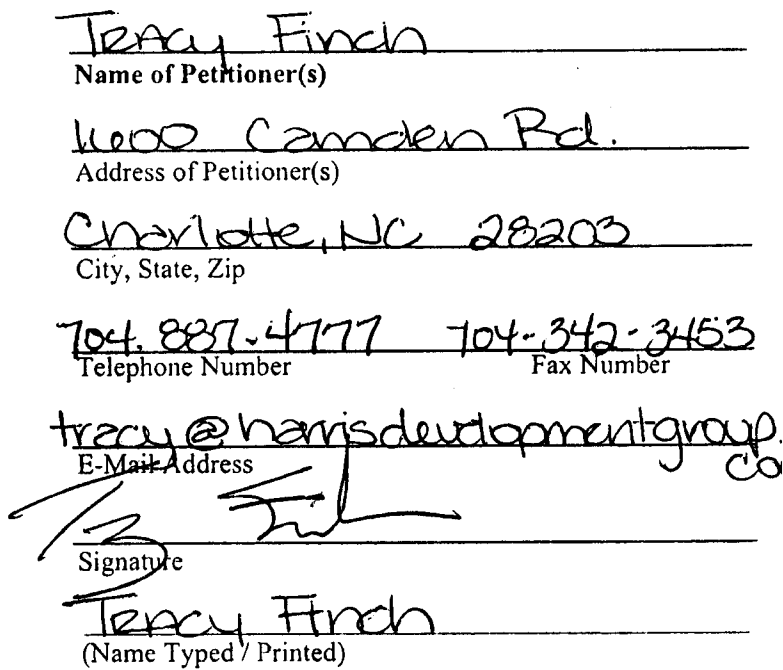 Tracy Finch
Name of Petitioner(s)
1600 Camden Rd.
Address of Petitioner(s)
Charlotte, NC 28203
City, State, Zip
704.887.4777 704-342-3453
Telephone Number Fax Number
tracy@harrisdevelopmentgroup.
co
E-Mail Address
Signature
Tracy Finch
(Name Typed / Printed)